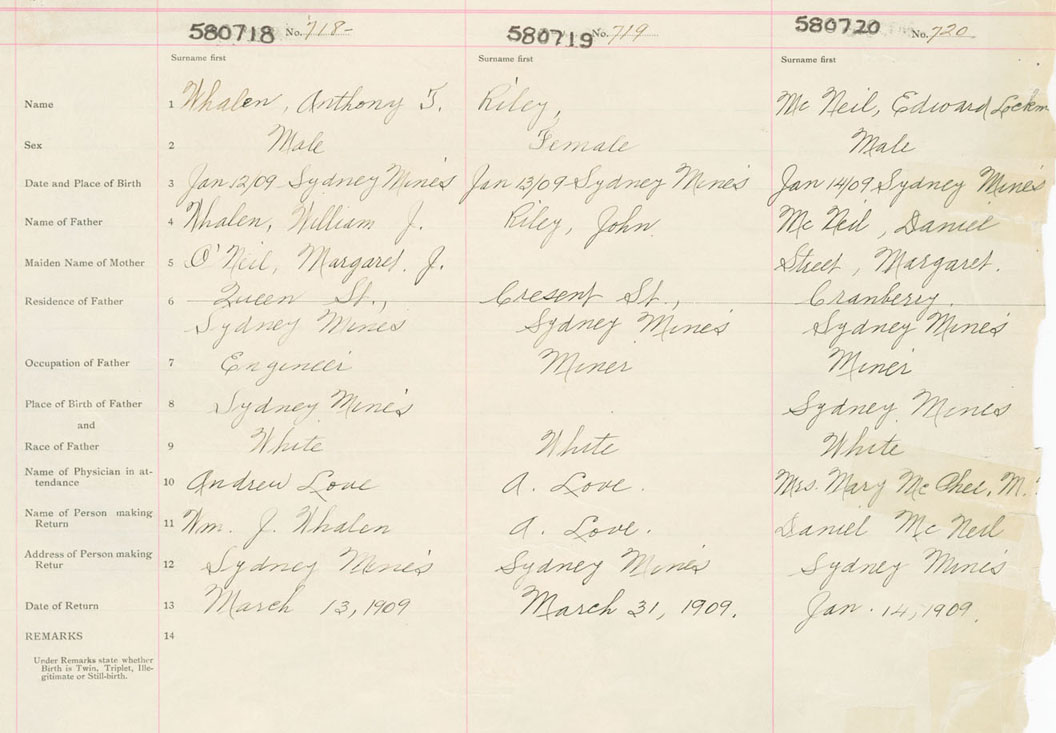 580718 No. 718- 580719 No. 719 580720 No. 720
Surname first Surname first Surname first
Name 1 Whalen, Anthony J. Riley, Mc Neil, Edward
Sex 2 Male Female Male
Date and Place of Birth 3 Jan 12/09 Sydney Mines Jan 13/09 Sydney Mines Jan 14/09 Sydney Mines
Name of Father 4 Whalen, William J. Riley, John Mc Neil, Daniel
Maiden Name of Mother 5 O'Neil, Margaret. J. Street, Margaret.
Residence of Father 6 Queen St., Cresent St., Cranberry.
Sydney Mines Sydney Mines Sydney Mines
Occupation of Father 7 Engineer Miner Miner
Place of Birth of Father 8 Sydney Mines Sydney Mines
and
Race of Father 9 White White White
Name of Physician in at-
tendance 10 Andrew Love A. Love. Mrs. Mary Mc Phee, M.
Name of Person making
Return 11 Wm. J. Whalen A. Love. Daniel Mc Neil
Address of Person making
Retur 12 Sydney Mines Sydney Mines Sydney Mines
Date of Return 13 March 13, 1909 March 31, 1909. Jan. 14, 1909.
REMARKS 14
Under Remarks state whether
Birth is Twin, Triplet, Ille-
gitimate or Still-birth.